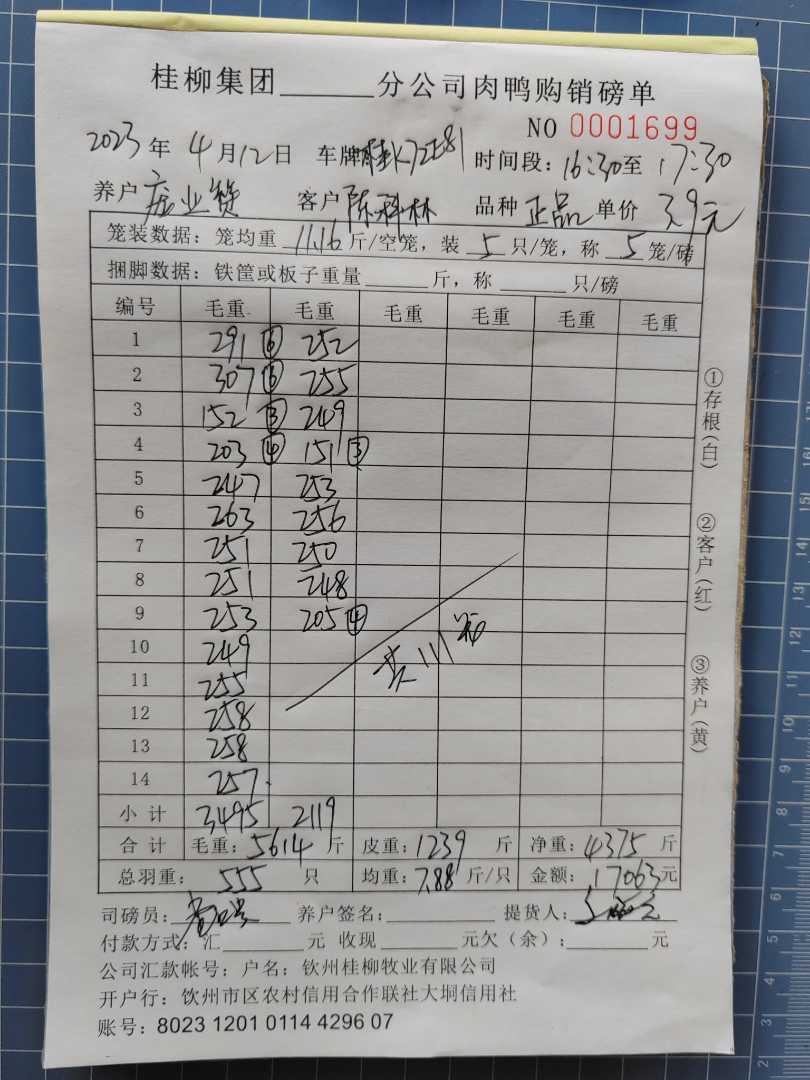 桂柳集团______分公司肉鸭购销磅单
NO 0001699
2023年 4月12日 车牌 桂K72E81 时间段:16:30至17:30
养户 庞业贤 客户 陈科林 品种 正品 单价 3.9元
笼装数据:笼均重 11.16 斤/空笼,装 5 只/笼,称 5 笼/磅
捆脚数据:铁筐或板子重量______斤,称______只/磅
编号 毛重 毛重 毛重 毛重 毛重 毛重
1 291⑥ 252
2 307⑥ 255
3 152③ 249
4 203④ 151③
5 247 253
6 263 256
7 251 250
8 251 248
9 253 205④
10 249
共111笼
11 255
12 258
13 258
14 257.
小计 3495 2119
合计 毛重:5614 斤 皮重:1239 斤 净重:4375 斤
总羽重: 555 只 均重:7.88 斤/只 金额:17063元
司磅员: 养户签名:________ 提货人:
付款方式:汇______元 收现______元欠(余):______元
公司汇款帐号:户名:钦州桂柳牧业有限公司
开户行:饮州市区农村信用合作联社大垌信用社
账号:8023 1201 0114 4296 07
①存根(白)
②客户(红)
③养户(黄)